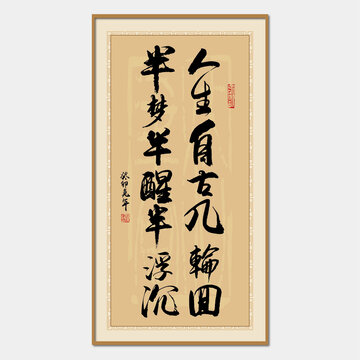 人生自古几輪回
半梦半醒半浮沉
癸卯兔年